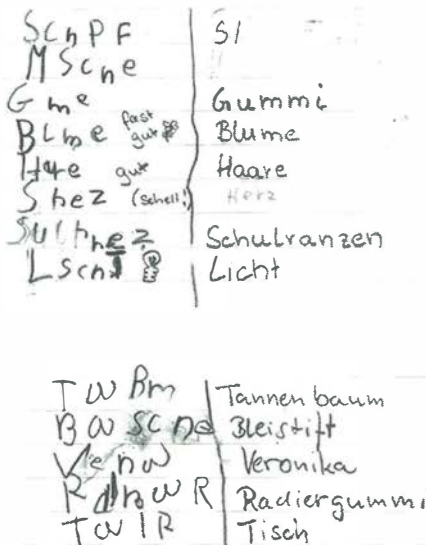 SchPF SI
MSche
Gme Gummi
BLme fast gut Blume
H4e gut Haare
Shez (schell!) Herz
SUlhhez Schulranzen
LschT Licht
TWBm Tannenbaum
BWSChe Bleistift
Venw Veronika
RdhwR Radiergummi
TWIR Tisch